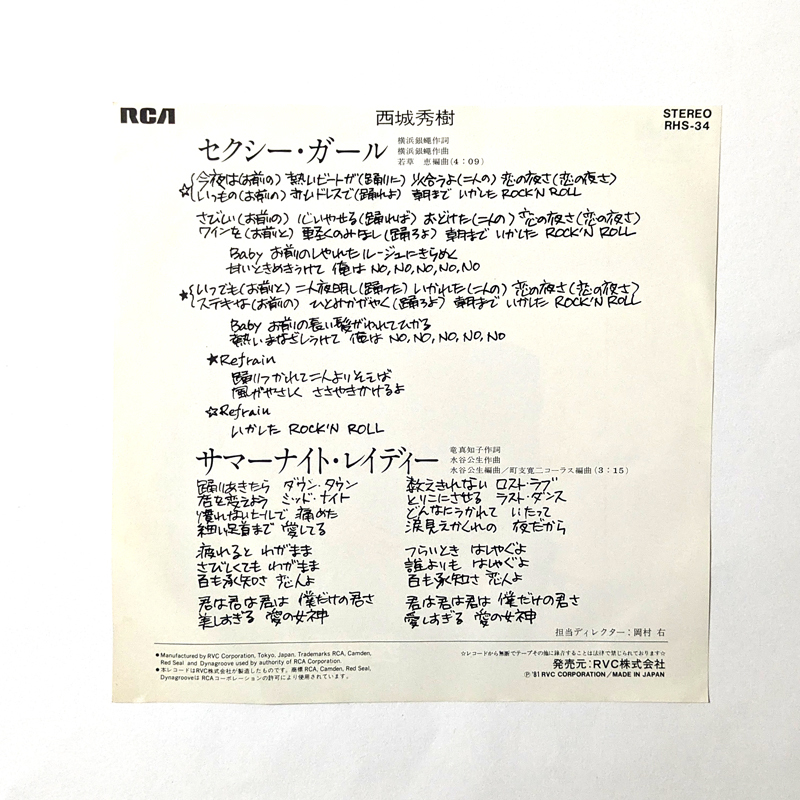 RCA
西城秀樹
STEREO
RHS-34
セクシー・ガール
横浜銀蝿作詞
横浜銀蝿作曲
若草 恵編曲(4:09)
☆{今夜は(お前の) 熱いビートが(踊りに) 火合うよ(二人の) 恋の夜さ(恋の夜さ)
いつもの(お前の) 赤いドレスで(踊れよ) 朝まで いかした ROCK'N ROLL
さびしい(お前の) 心いやせる(踊れば) おどけた(二人の) 恋の夜さ(恋の夜さ)
ワインを(お前と) 軽くのみほし(踊ろよ) 朝まで いかした ROCK'N ROLL
Baby お前のしゃれたルージュにきらめく
甘いときめきうけて 俺は NO, NO, NO, NO, NO
★{いつでも(お前と) 二人夜明し(踊った) いかれた(二人の) 恋の夜さ(恋の夜さ)
ステキな(お前の) ひとみかがやく(踊ろよ) 朝まで いかした ROCK'N ROLL
Baby お前の長い髪がゆれてひかる
熱いまなざしうけて 俺は NO, NO, NO, NO, NO
★Refrain
踊りつかれて二人よりそえば
風がやさしく ささやきかけるよ
☆Refrain
いかした ROCK'N ROLL
サマーナイト・レイディー
竜真知子作詞
水谷公生作曲
水谷公生編曲/町支寛二コーラス編曲(3:15)
踊りあきたら ダウン・タウン
店を変えよう ミッド・ナイト
慣れないヒールで 痛めた
細い足首まで 愛してる
疲れると わがまま
さびしくても わがまま
百も承知さ 恋人よ
君は君は君は 僕だけの君さ
美しすぎる 愛の女神
数えきれない ロスト・ラブ
とりこにさせる ラスト・ダンス
どんなにうかれて いたって
涙見えかくれの 夜だから
つらいとき はしゃぐよ
誰よりも はしゃぐよ
百も承知さ 恋人よ
君は君は君は 僕だけの君さ
愛しすぎる 愛の女神
担当ディレクター:岡村 右
●Manufactured by RVC Corporation, Tokyo, Japan. Trademarks RCA, Camden,
Red Seal and Dynagroove used by authority of RCA Corporation.
●本レコードはRVC株式会社が製造したものです。商標RCA, Camden, Red Seal,
DynagrooveはRCAコーポレーションの許可により使用されています。
☆レコードから無断でテープその他に録音することは法律で禁じられております☆
発売元:RVC株式会社
Ⓟ '81 RVC CORPORATION/MADE IN JAPAN